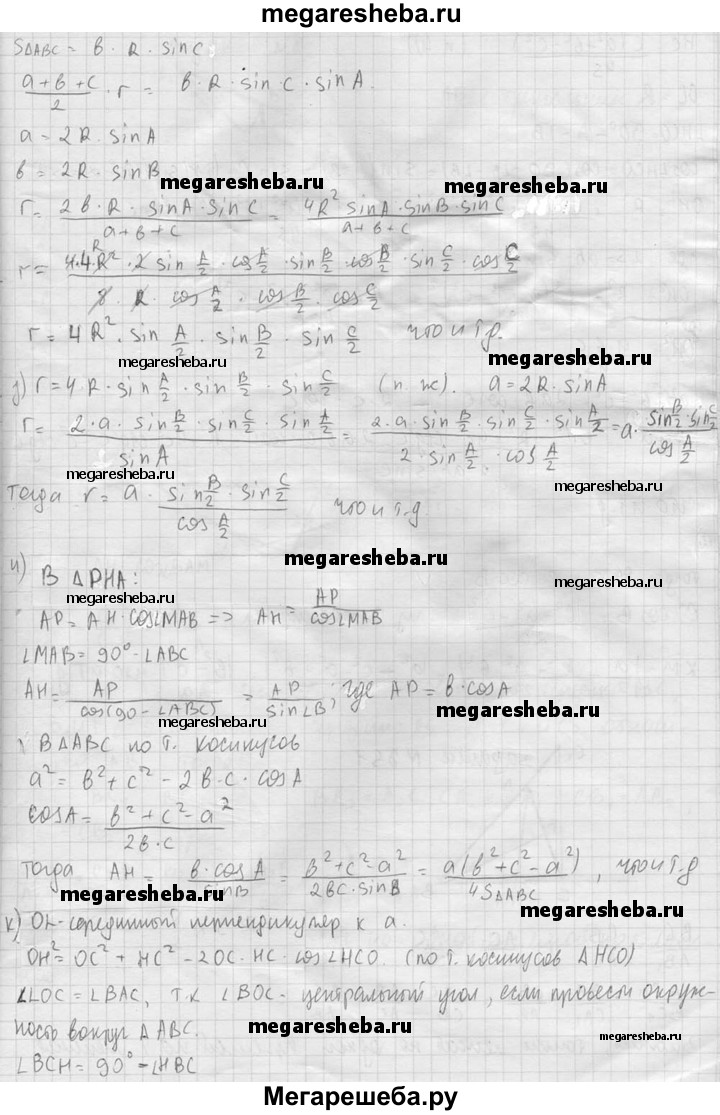 megaresheba.ru
S∆ABC = в · R · sinC
(a+в+c)/2 · r = в · R · sin·C · sinA.
a = 2R · sinA
в = 2R · sinB
megaresheba.ru megaresheba.ru
r = (2в·R · sinA·sinC)/(a+в+c) = (4R² sinA·sinB·sinC)/(a+в+c)
r = (4·4·R² · 2 sin A/2 · cos A/2 · sin B/2 · cos B/2 · sin C/2 · cos C/2)/(8 · R · cos A/2 · cos B/2 · cos C/2)
r = 4R² · sin A/2 · sin B/2 · sin C/2 что и т.д.
megaresheba.ru megaresheba.ru
r = 4·R·sin A/2 · sin B/2 · sin C/2 (п. ж). a = 2R · sinA
r = (2·a · sin B/2 · sin C/2 · sin A/2)/sinA = (2·a·sin B/2 · sin C/2 · sin A/2)/(2 · sin A/2 · cos A/2) = a · (sin B/2 · sin C/2)/(cos A/2)
megaresheba.ru megaresheba.ru
Тогда r = a · (sin B/2 · sin C/2)/(cos A/2) что и т.д
megaresheba.ru
и) В ∆PHA:
megaresheba.ru megaresheba.ru
AP = AH·cos∠MAB => AH = AP/cos∠MAB
∠MAB = 90° - ∠ABC
AH = AP/cos(90 - ∠ABC) = AP/sin∠B; где AP = в·cosA
megaresheba.ru megaresheba.ru
В ∆ABC по т. косинусов
a² = в² + c² - 2в·c · cosA
cosA = (в² + c² - a²)/(2в·c)
Тогда AH = (в·cosA)/sinB = (в² + c² - a²)/(2вс·sinB) = a(в² + c² - a²)/(4S∆ABC), что и т.д
megaresheba.ru megaresheba.ru
к) OL - серединный перпендикуляр к a.
OH² = OC² + HC² - 2OC · HC · cos∠HCO. (по т. косинусов ∆HCO)
∠LOC = ∠BAC, т.к ∠BOC - центральный угол, если провести окруж-
ность вокруг ∆ABC.
megaresheba.ru megaresheba.ru
∠BCH = 90° - ∠HBC
Мегарешеба.ру